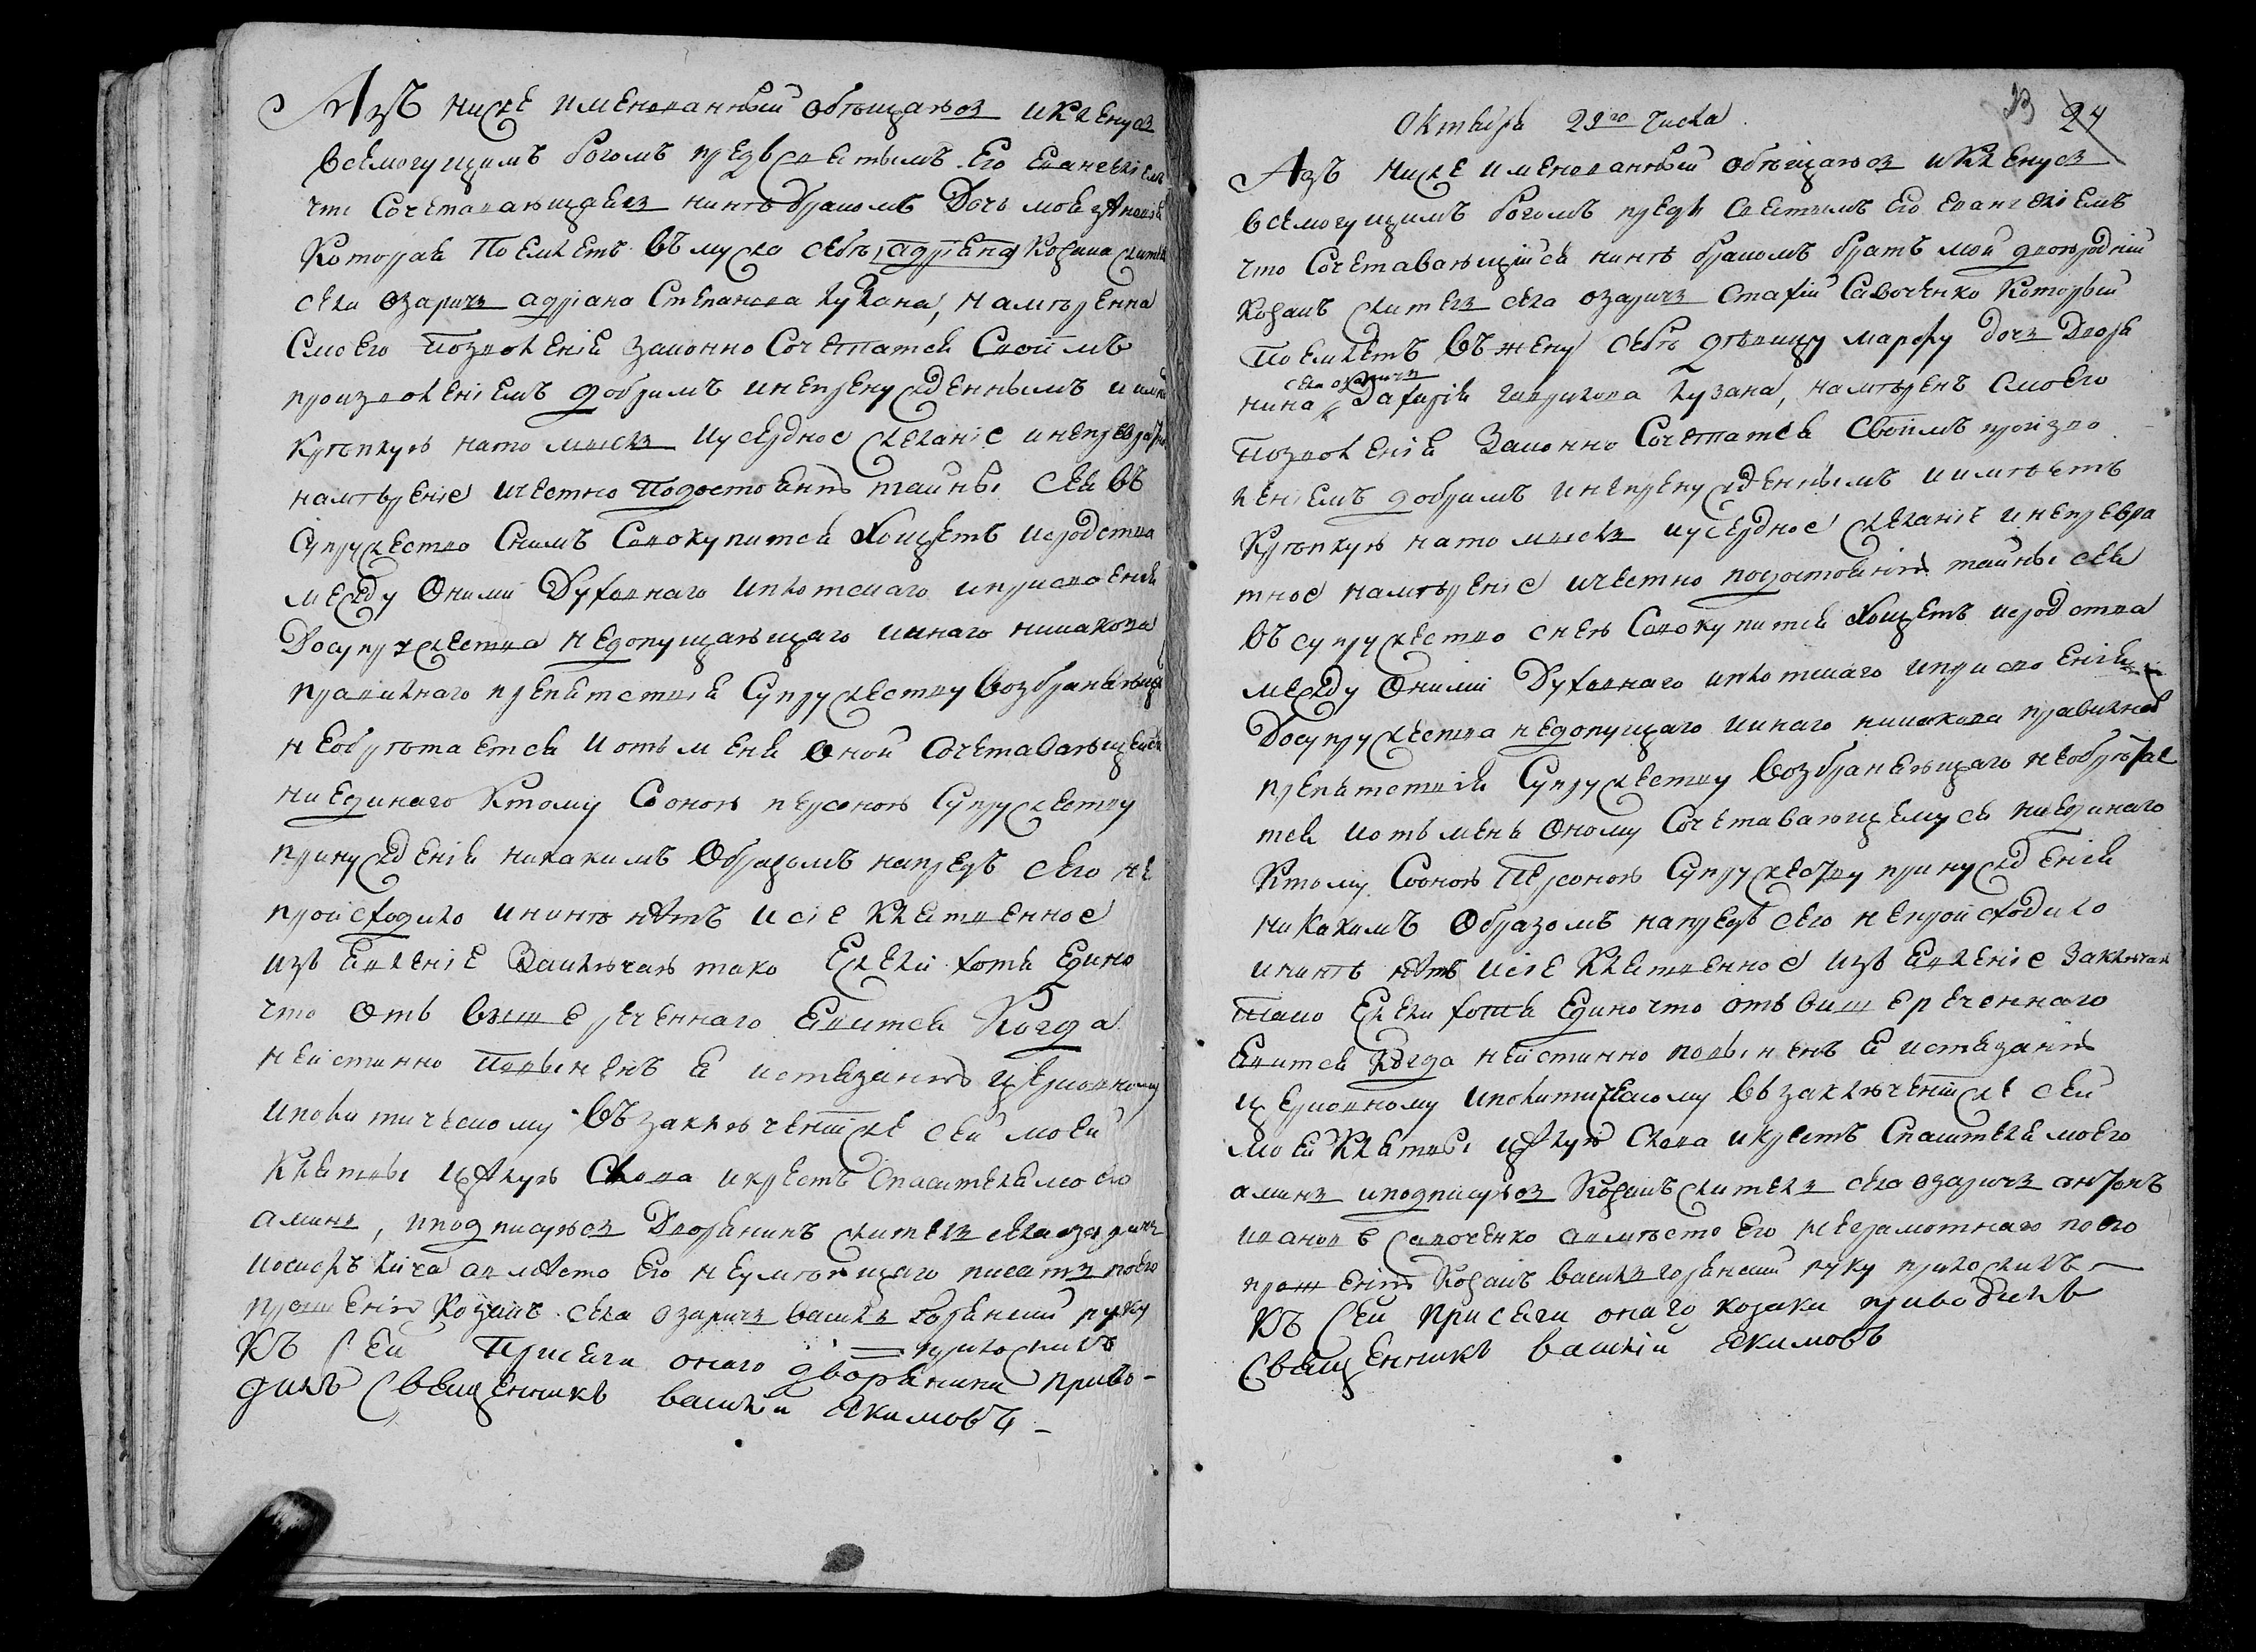 Азъ ниже именованный обѣщаюсь и кленусь
всемогущимъ богомъ предъ светымъ его евангелїемъ
что сочетавающаясь нинѣ бракомъ дочь моя
Которая поемлетъ въ мужа себѣ адрїана козака жителя
села озаричь адрїана Степанова кузана, намѣренна
с моего позволенїя законно сочетатся своимъ
произволенїемъ добримъ и непренужденнымъ и имѣ
крѣпкую на то мысль и усердное желанїе и непревра
намѣренїе и честно по достоянїю тайны сея въ
супружество снимъ совокупится хощетъ и сродства
между оними духовнаго и плотскаго и присвоенїя
до супружества недопущающаго и инаго никакова
правилнаго препятствїя супружеству возбраняюща
необрѣтается и отъ мене оной сочетавающейся
ни единаго к тому со оною персоною супружеству
принужденїя никакимъ образомъ напредъ сего не
происходило и нинѣ нѣтъ и сїе клятвенное
изъявленїе заключаю тако ежели хотя едино
что отъ вишереченнаго явится когда
неистинно повыненъ я истязанїю церковному
и политическому въ заключенїи же сей моей
клятвы цѣлую слова и крестъ спасителя моего
аминь, и подписуюсь дворянинъ житель села озаричь
иосифъ лича а вмѣсто его неумѣющаго писать по его
прошенїю козакъ села озаричь василь горянский руку
приложилъ
Къ сей присяги онаго дворянина приво-
дилъ священникъ василїй Якимовъ
23 24
Октября 29го числа
Азъ ниже именованный обѣщаюсь и кленусь
всемогущимъ богомъ предъ светымъ его евангелїемъ
что сочетавающийся нинѣ бракомъ братъ мой двоюродний
козакъ житель села озаричь Стафїй Савоченко который
поемлетъ въ жену себѣ дѣвицу марфу дочь дворя
села озаричи
нина Захарїя гаврилова кузана, намѣренъ с моего
позволенїя законно сочетатся своимъ произво
ленїемъ добримъ и непренужденнымъ и имѣетъ
крѣпкую на то мысль и усердное желанїе и непревра
тное намѣренїе и честно по достоянїю тайны сея
въ супружество снею совокупится хощетъ и сродства
между оними духовнаго и плотскаго и присвоенїя
до супружества недопущаго и инаго никакова правилнаго
препятствїя супружеству возбраняющаго необрѣтае
тся и отъ мене оному сочетавающемуся ни единаго
к тому со оною персоною супружеству принужденїя
никакимъ образомъ напредъ сего непроисходило
и нинѣ нѣтъ и сїе клятвенное изъявленїе заключаю
тако ежели хотя едино что отъ вишереченнаго
явится когда неистинно повыненъ я истязанїю
церковному и политическому въ заключенїи же сей
моей клятвы цѣлую слова и крестъ спасителя моего
аминь и подписуюсь козакъ житель села озаричь антонъ
иванов с савоченко а вмѣсто его неграмотнаго по его
прошенїю козакъ василь горянский руку приложилъ
Къ сей присяги онаго козака приводилъ
священникъ василїй Якимовъ